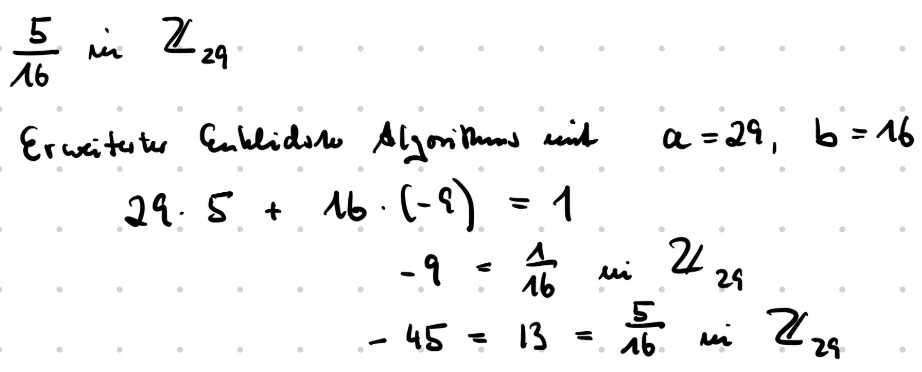 5/16 in ℤ₂₉
Erweiterter Euklidsche Algorithmus mit a = 29, b = 16
29 · 5 + 16 · (-9) = 1
-9 = 1/16 in ℤ₂₉
- 45 = 13 = 5/16 in ℤ₂₉